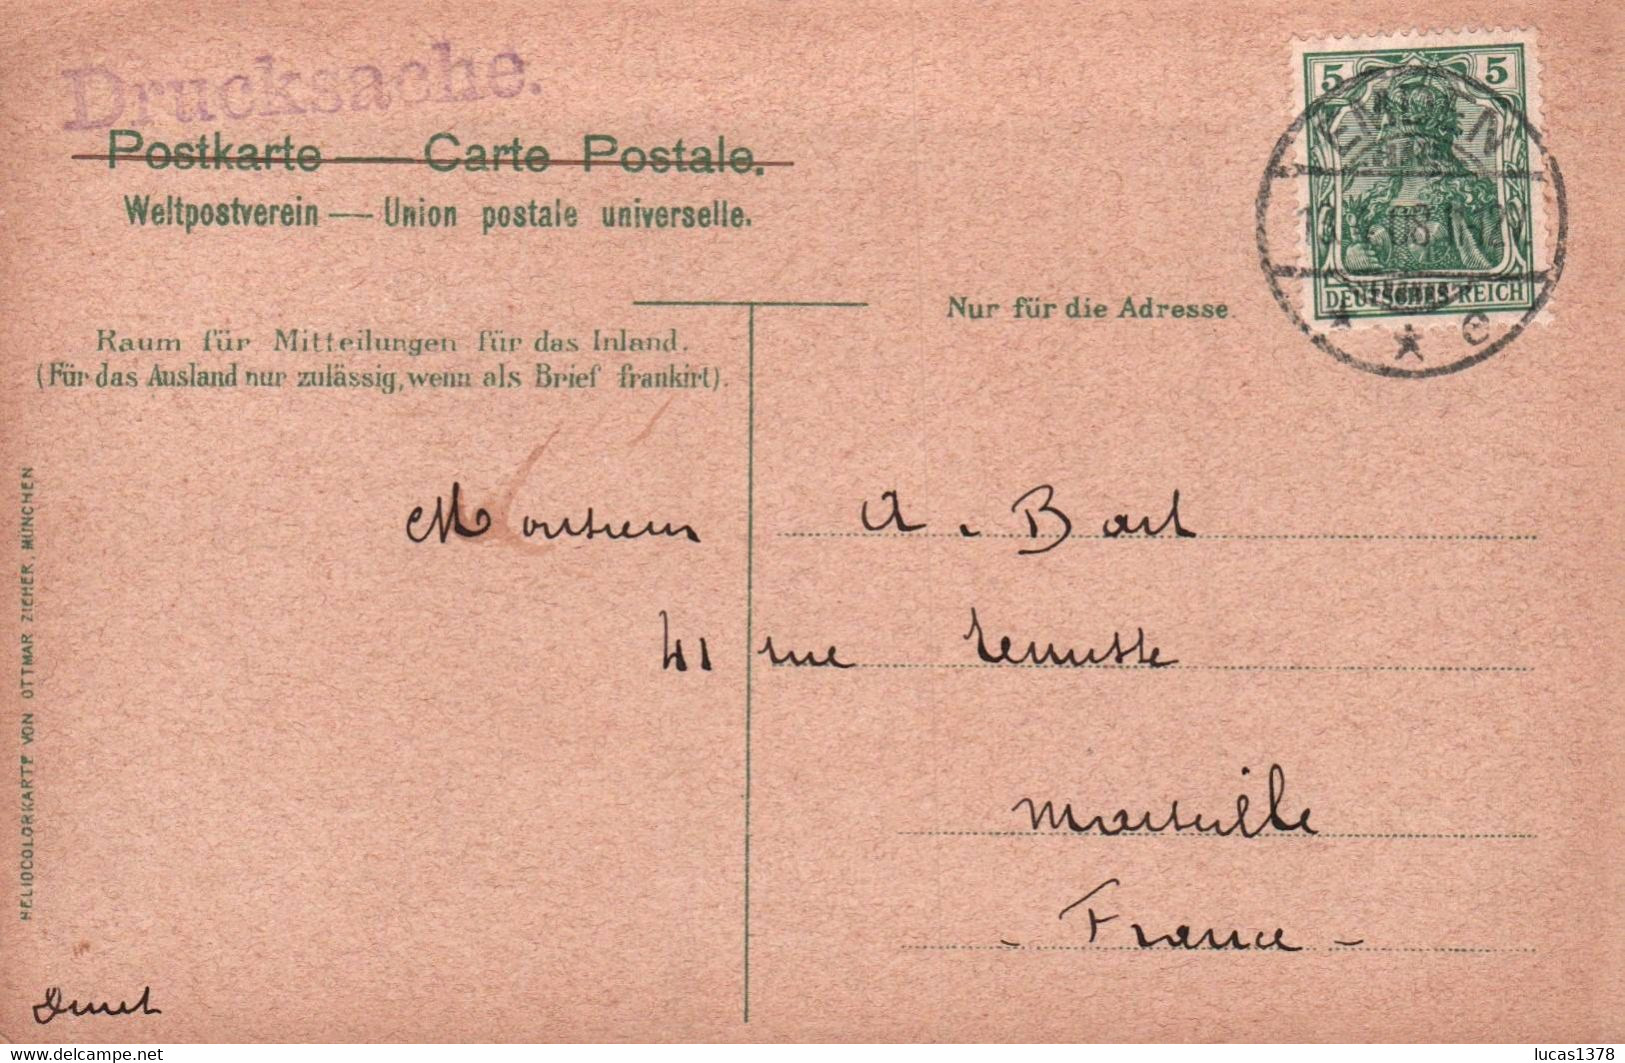 Drucksache.
Postkarte — Carte Postale.
Weltpostverein — Union postale universelle.
5 5
EMDEN
08
DEUTSCHES REICH
* * e
Nur für die Adresse
Raum für Mitteilungen für das Inland.
(Für das Ausland nur zulässig, wenn als Brief frankirt).
HELIOCOLORKARTE VON OTTMAR ZIEHER, MÜNCHEN
Monsieur A. Bart
41 rue
Marseille
- France -
delcampe.net
lucas1378